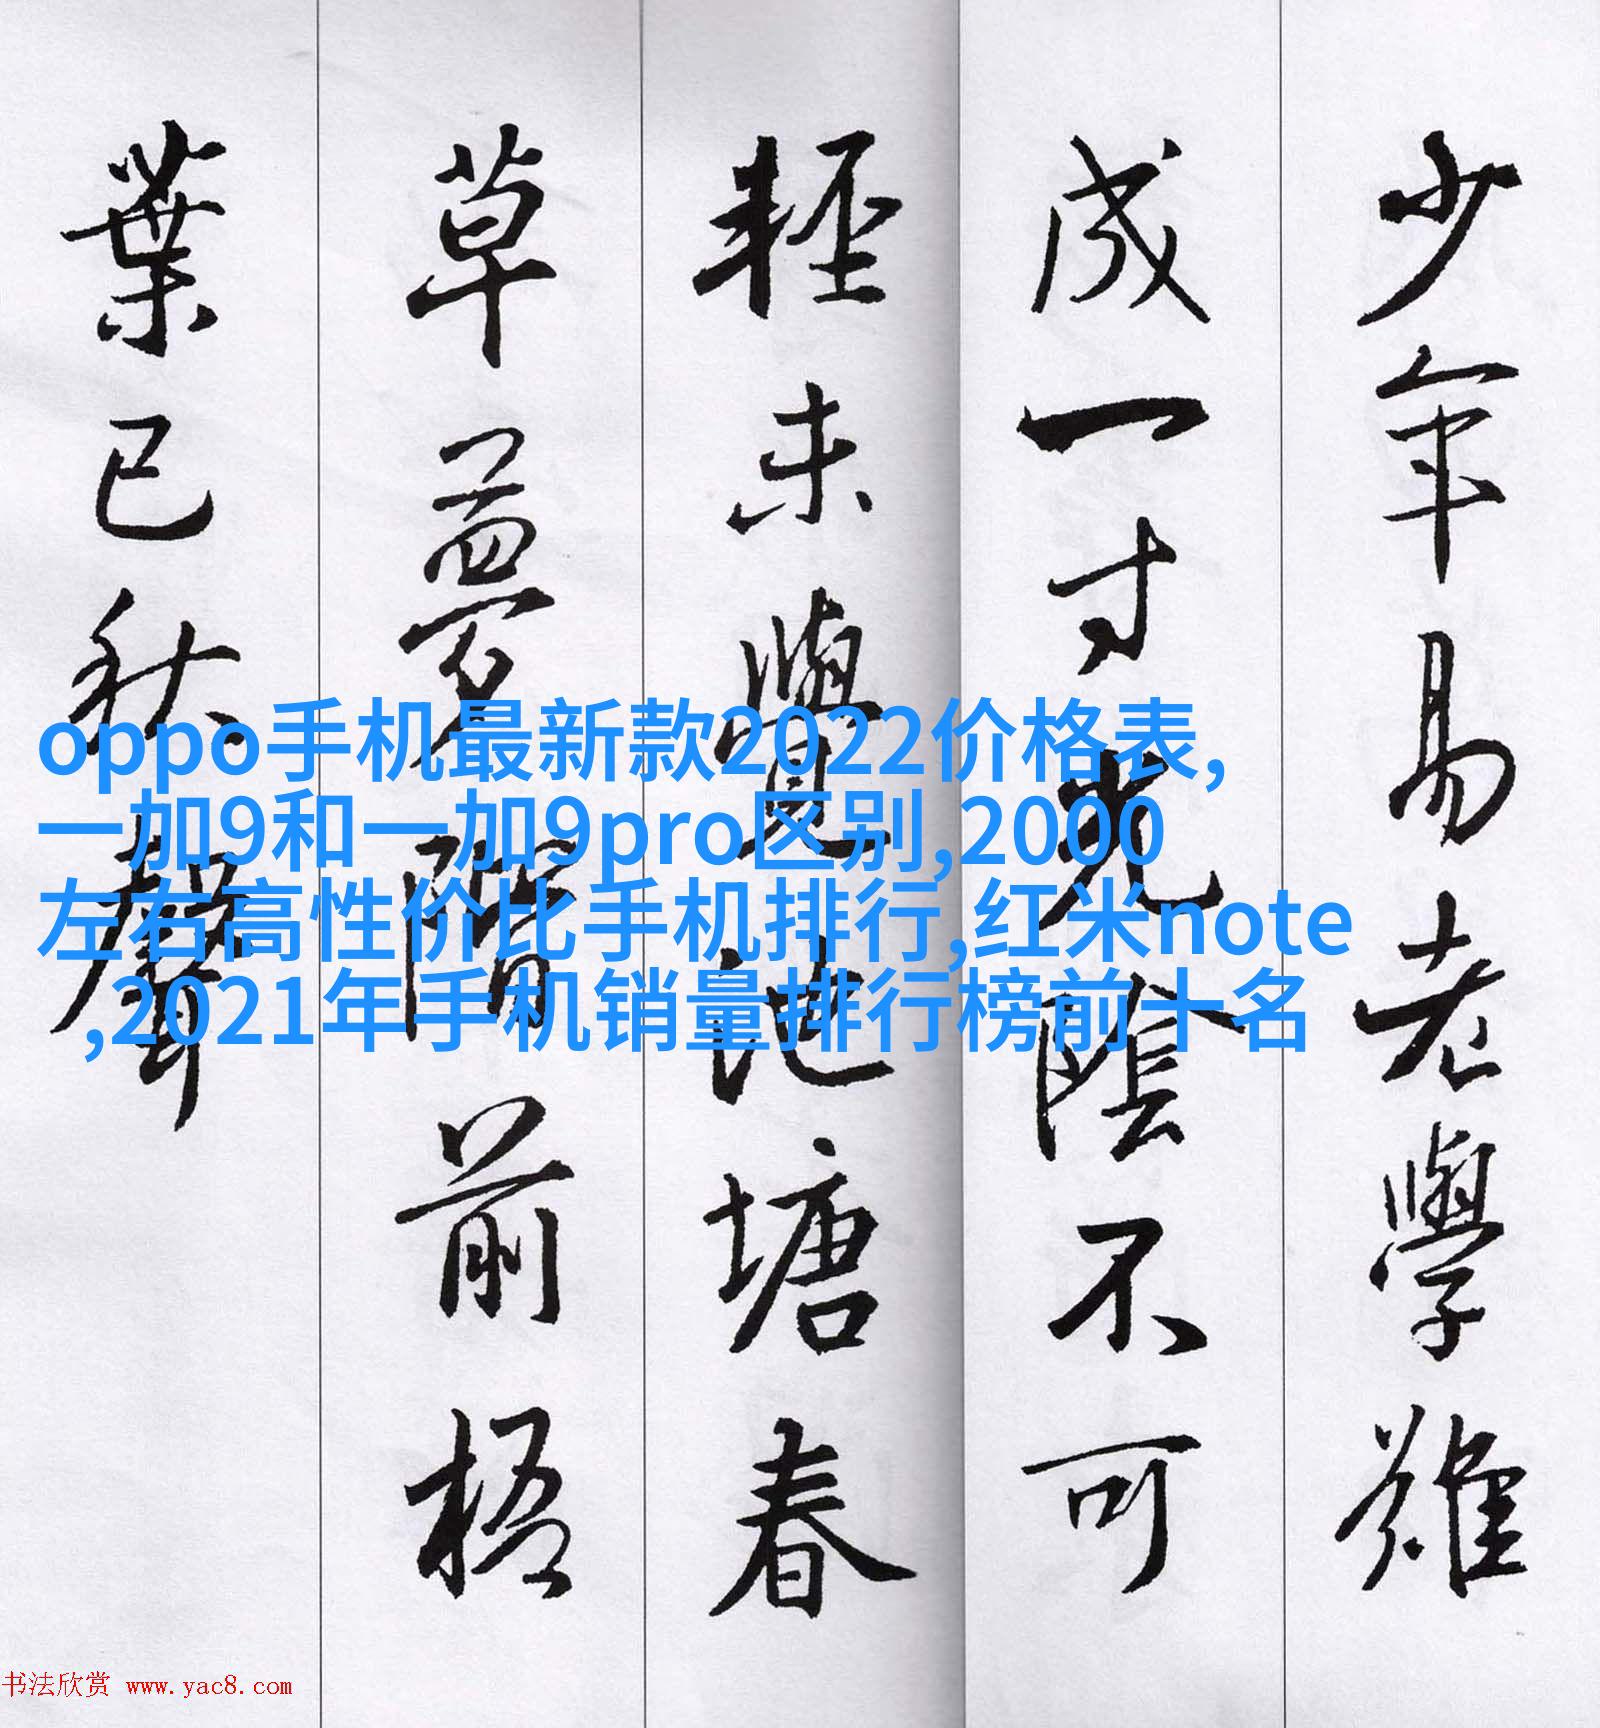 少年易老學難
成一寸光陰不可
輕未覺池塘春
草夢階前梧
葉已秋聲
oppo手机最新款2022价格表,
一加9和一加9pro区别,2000
左右高性价比手机排行,红米note
,2021年手机销量排行榜前十名
书法欣赏 www.yac8.com